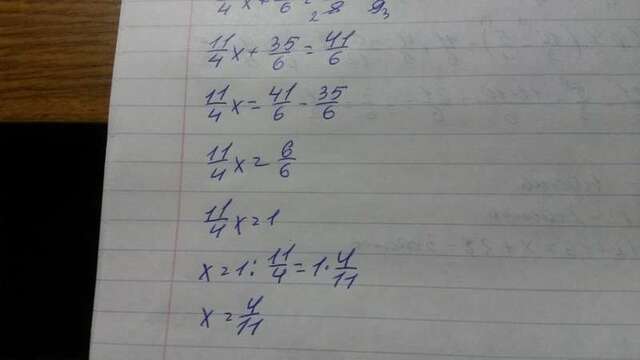 11/4 x + 35/6 = 41/6
11/4 x = 41/6 - 35/6
11/4 x = 6/6
11/4 x = 1
x = 1 : 11/4 = 1 · 4/11
x = 4/11